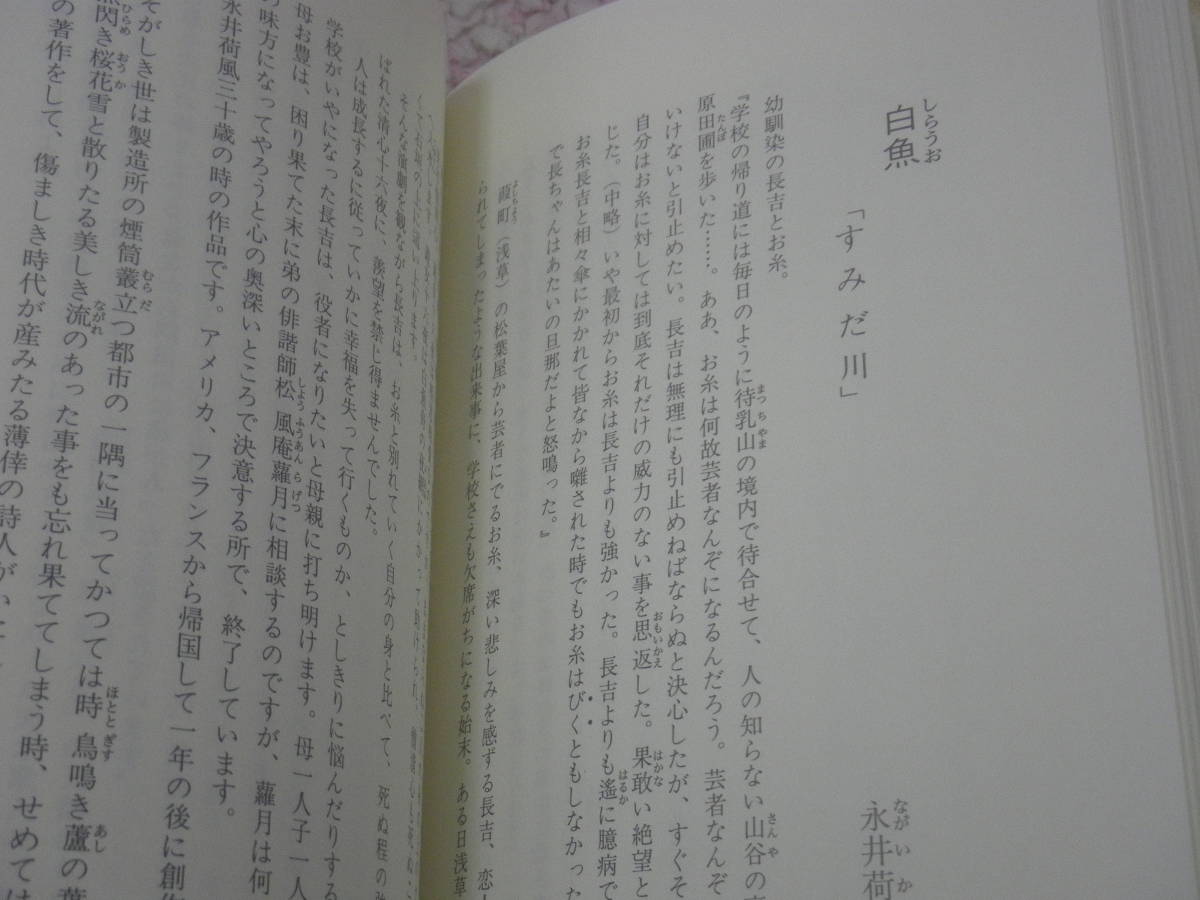 白魚
「すみだ川」
永井荷
幼馴染の長吉とお糸。
『学校の帰り道には毎日のように待乳山の境内で待合せて、人の知らない山谷の
原田圃を歩いた……。ああ、お糸は何故芸者なんぞになるんだろう。芸者なんぞ
いけないと引止めたい。長吉は無理にも引止めねばならぬと決心したが、すぐそ
自分はお糸に対しては到底それだけの威力のない事を思返した。果敢い絶望と
じた。(中略)いや最初からお糸は長吉よりも強かった。長吉よりも遙に臆病で
お糸長吉と相々傘にかかれて皆なから囃された時でもお糸はびくともしなかった
で長ちゃんはあたいの旦那だよと怒鳴った。』
葭町(浅草)の松葉屋から芸者にでるお糸、深い悲しみを感ずる長吉、恋
られてしまったような出来事に、学校さえも欠席がちになる始末。ある日浅草
そんな演劇を観ながら長吉は、お糸と別れていく自分の身と比べて、死ぬ程の強
ばれた清心十六夜に、羨望を禁じ得ませんでした。
人は成長するに従っていかに幸福を失って行くものか、としきりに悩んだりする
学校がいやになった長吉は、役者になりたいと母親に打ち明けます。母一人子一人
母お豊は、困り果てた末に弟の俳諧師松風庵蘿月に相談するのですが、蘿月は何
の味方になってやろうと心の奥深いところで決意する所で、終了しています。
永井荷風三十歳の時の作品です。アメリカ、フランスから帰国して一年の後に創作
そがしき世は製造所の煙筒叢立つ都市の一隅に当ってかつては時鳥鳴き蘆の葉
閃き桜花雪と散りたる美しき流のあった事をも忘れ果ててしまう時、せめては
の著作をして、傷ましき時代が産みたる薄倖の詩人が